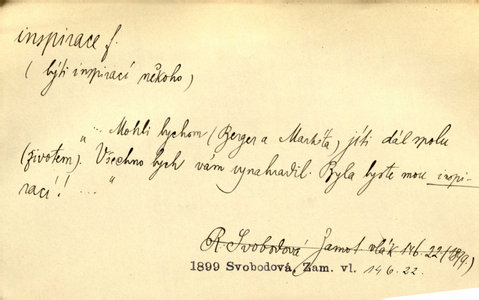 inspirace f.
(býti inspirací někoho)
"... Mohli bychom (Berger a Markéta) jíti dál spolu
(životem). Všechno bych vám vynahradil. Byla byste mou inspi-
rací! ... "
R. Svobodová Zamot. vlák 146.22 (1899.)
1899 Svobodová, Zam. vl. 146.22.